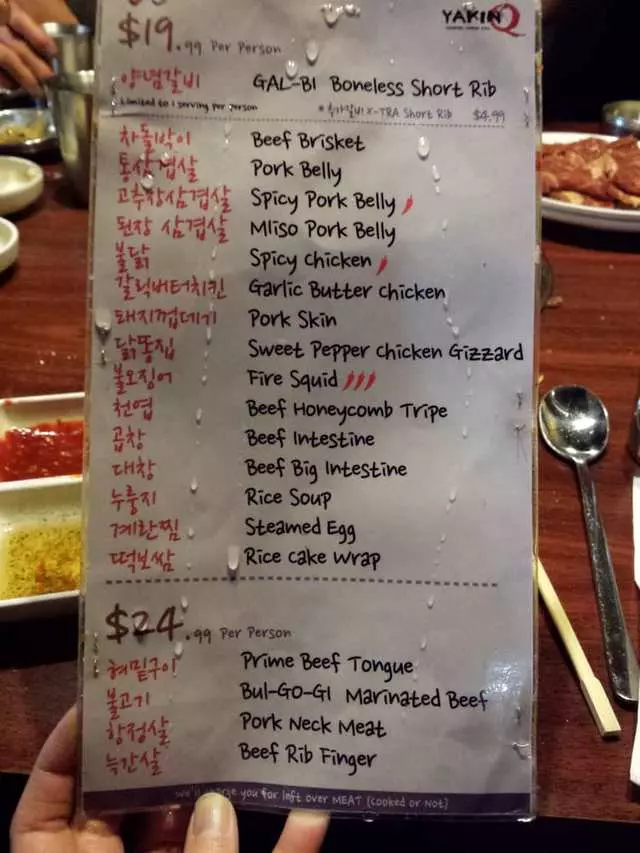 YAKINIQ
$19.99 Per Person
양념갈비 GAL-BI Boneless Short Rib
Limited to 1 serving per person * 추가갈비 X-TRA Short Rib $4.99
차돌박이 Beef Brisket
통삼겹살 Pork Belly
고추장삼겹살 Spicy Pork Belly
된장 삼겹살 MIiso Pork Belly
불닭 Spicy Chicken
갈릭버터치킨 Garlic Butter Chicken
돼지껍데기 Pork Skin
닭똥집 Sweet Pepper Chicken Gizzard
불오징어 Fire Squid
천엽 Beef Honeycomb Tripe
곱창 Beef Intestine
대창 Beef Big Intestine
누룽지 Rice Soup
계란찜 Steamed Egg
떡보쌈 Rice Cake Wrap
$24.99 Per Person
혀밑구이 Prime Beef Tongue
불고기 Bul-GO-GI Marinated Beef
항정살 Pork Neck Meat
늑간살 Beef Rib Finger
We'll charge you for left over MEAT (Cooked or Not)